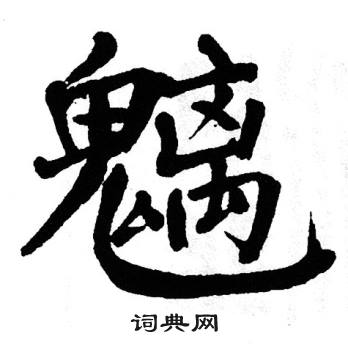 魑
词典网